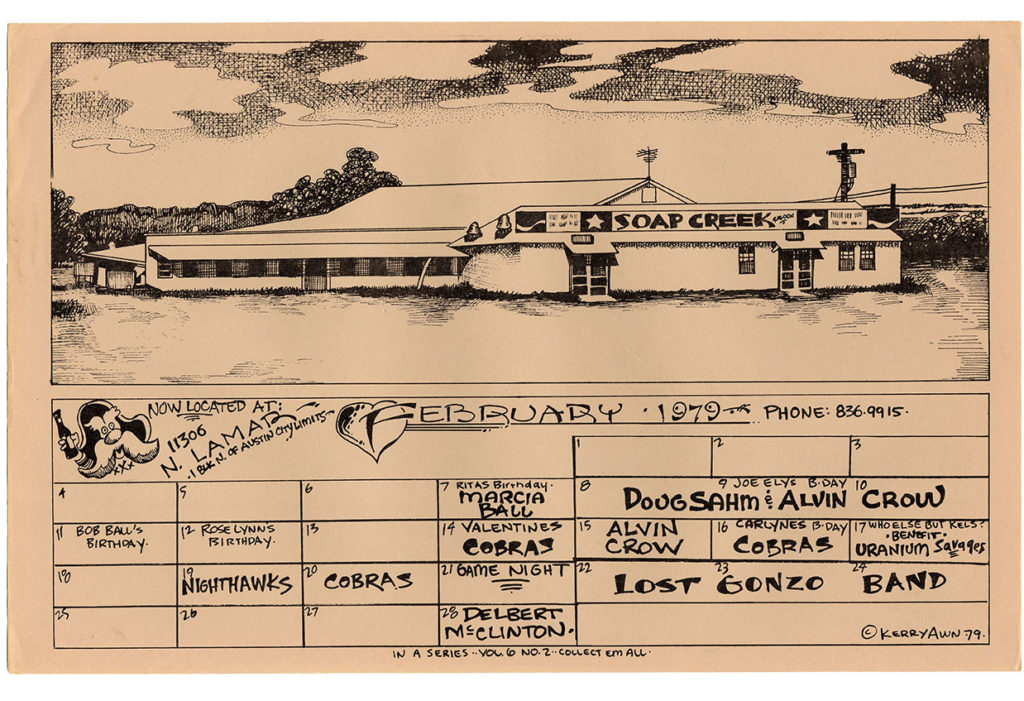 ★ SOAP CREEK SALOON ★
NOW LOCATED AT:
11306
N. LAMAR
1 BLK N. OF AUSTIN CITY LIMITS
FEBRUARY · 1979
PHONE: 836·9915·
1
2
3
4
5
6
7 RITAS Birthday·
MARCIA
BALL
8
9 JOE ELYS B·DAY
10
DOUG SAHM & ALVIN CROW
11 BOB BALL'S
BIRTHDAY·
12 ROSELYNN'S
BIRTHDAY·
13
14 VALENTINES
COBRAS
15 ALVIN
CROW
16 CARLYNES B·DAY
COBRAS
17 WHO ELSE BUT KELS?
·BENEFIT·
URANIUM SAVAGES
18
19
NIGHTHAWKS
20 COBRAS
21 GAME NIGHT
22
23
24
LOST GONZO BAND
25
26
27
28 DELBERT
McCLINTON·
© KERRY AWN 79·
IN A SERIES··VOL. 6 NO. 2··COLLECT EM ALL·